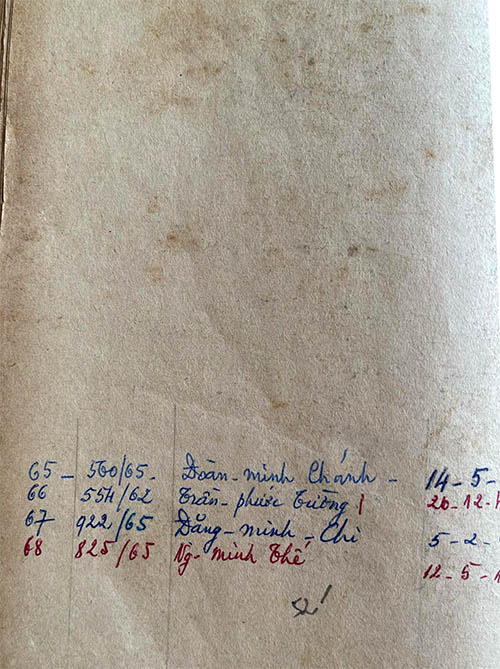 65 - 560/65 - Đoàn - minh Chánh - 14 - 5 -
66 554/62 Trần - phước Tường 26 - 12 -
67 922/65 Đăng - minh - Chi 5 - 2 -
68 825/65 Ng - minh Thế 12 - 5 -